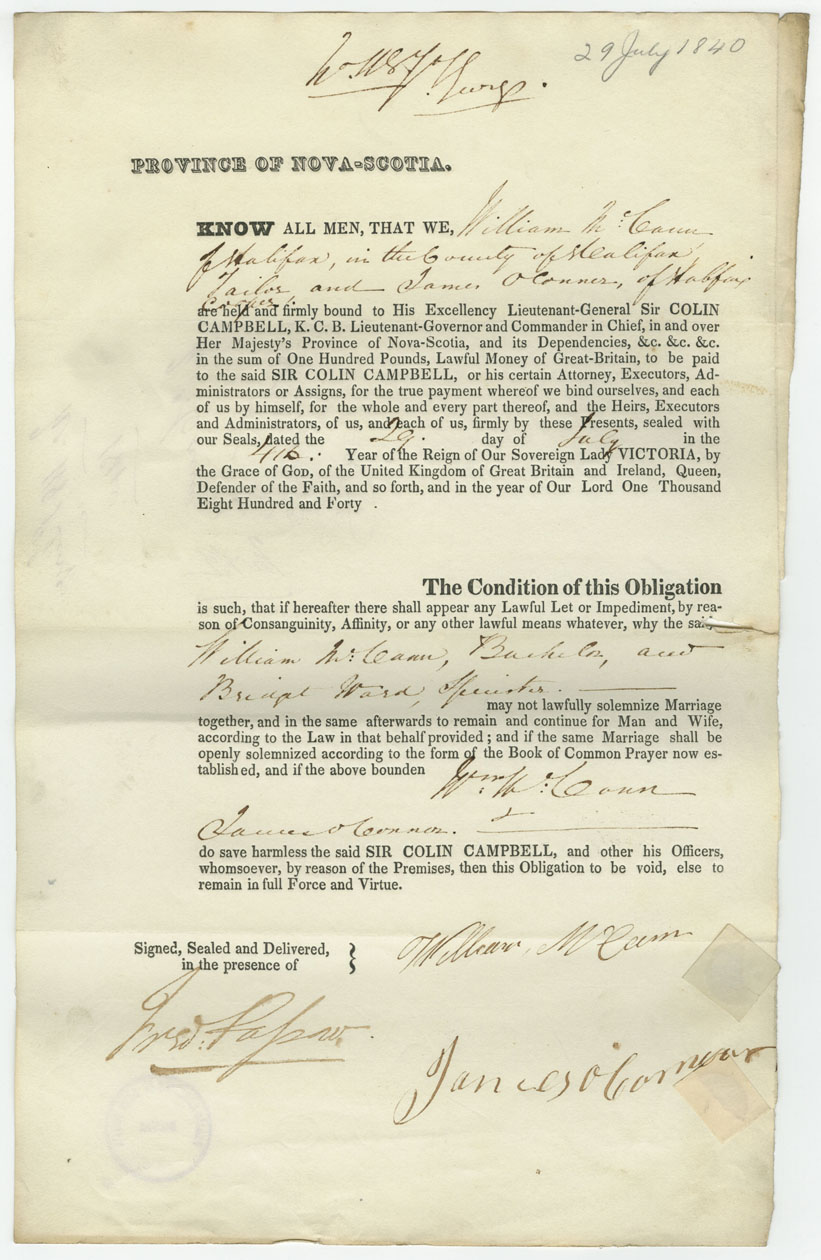 29 July 1840
PROVINCE OF NOVA-SCOTIA.
KNOW ALL MEN, THAT WE, William McCann
of Halifax, in the County of Halifax,
Tailor and James O'Conner, of Halifax
are held and firmly bound to His Excellency Lieutenant-General Sir COLIN
CAMPBELL, K. C. B. Lieutenant-Governor and Commander in Chief, in and over
Her Majesty's Province of Nova-Scotia, and its Dependencies, &c. &c. &c.
in the sum of One Hundred Pounds, Lawful Money of Great-Britain, to be paid
to the said SIR COLIN CAMPBELL, or his certain Attorney, Executors, Ad-
ministrators or Assigns, for the true payment whereof we bind ourselves, and each
of us by himself, for the whole and every part thereof, and the Heirs, Executors
and Administrators, of us, and each of us, firmly by these Presents, sealed with
our Seals, dated the 29. day of July in the
4th. Year of the Reign of Our Sovereign Lady VICTORIA, by
the Grace of GOD, of the United Kingdom of Great Britain and Ireland, Queen,
Defender of the Faith, and so forth, and in the year of Our Lord One Thousand
Eight Hundred and Forty .
The Condition of this Obligation
is such, that if hereafter there shall appear any Lawful Let or Impediment, by rea-
son of Consanguinity, Affinity, or any other lawful means whatever, why the said
William McCann, Bachelor, and
Bridget Ward, Spinster.
may not lawfully solemnize Marriage
together, and in the same afterwards to remain and continue for Man and Wife,
according to the Law in that behalf provided ; and if the same Marriage shall be
openly solemnized according to the form of the Book of Common Prayer now es-
tablished, and if the above bounden Wm McCann
James O'Connor.
do save harmless the said SIR COLIN CAMPBELL, and other his Officers,
whomsoever, by reason of the Premises, then this Obligation to be void, else to
remain in full Force and Virtue.
Signed, Sealed and Delivered,
in the presence of
William McCann
James O'Connor